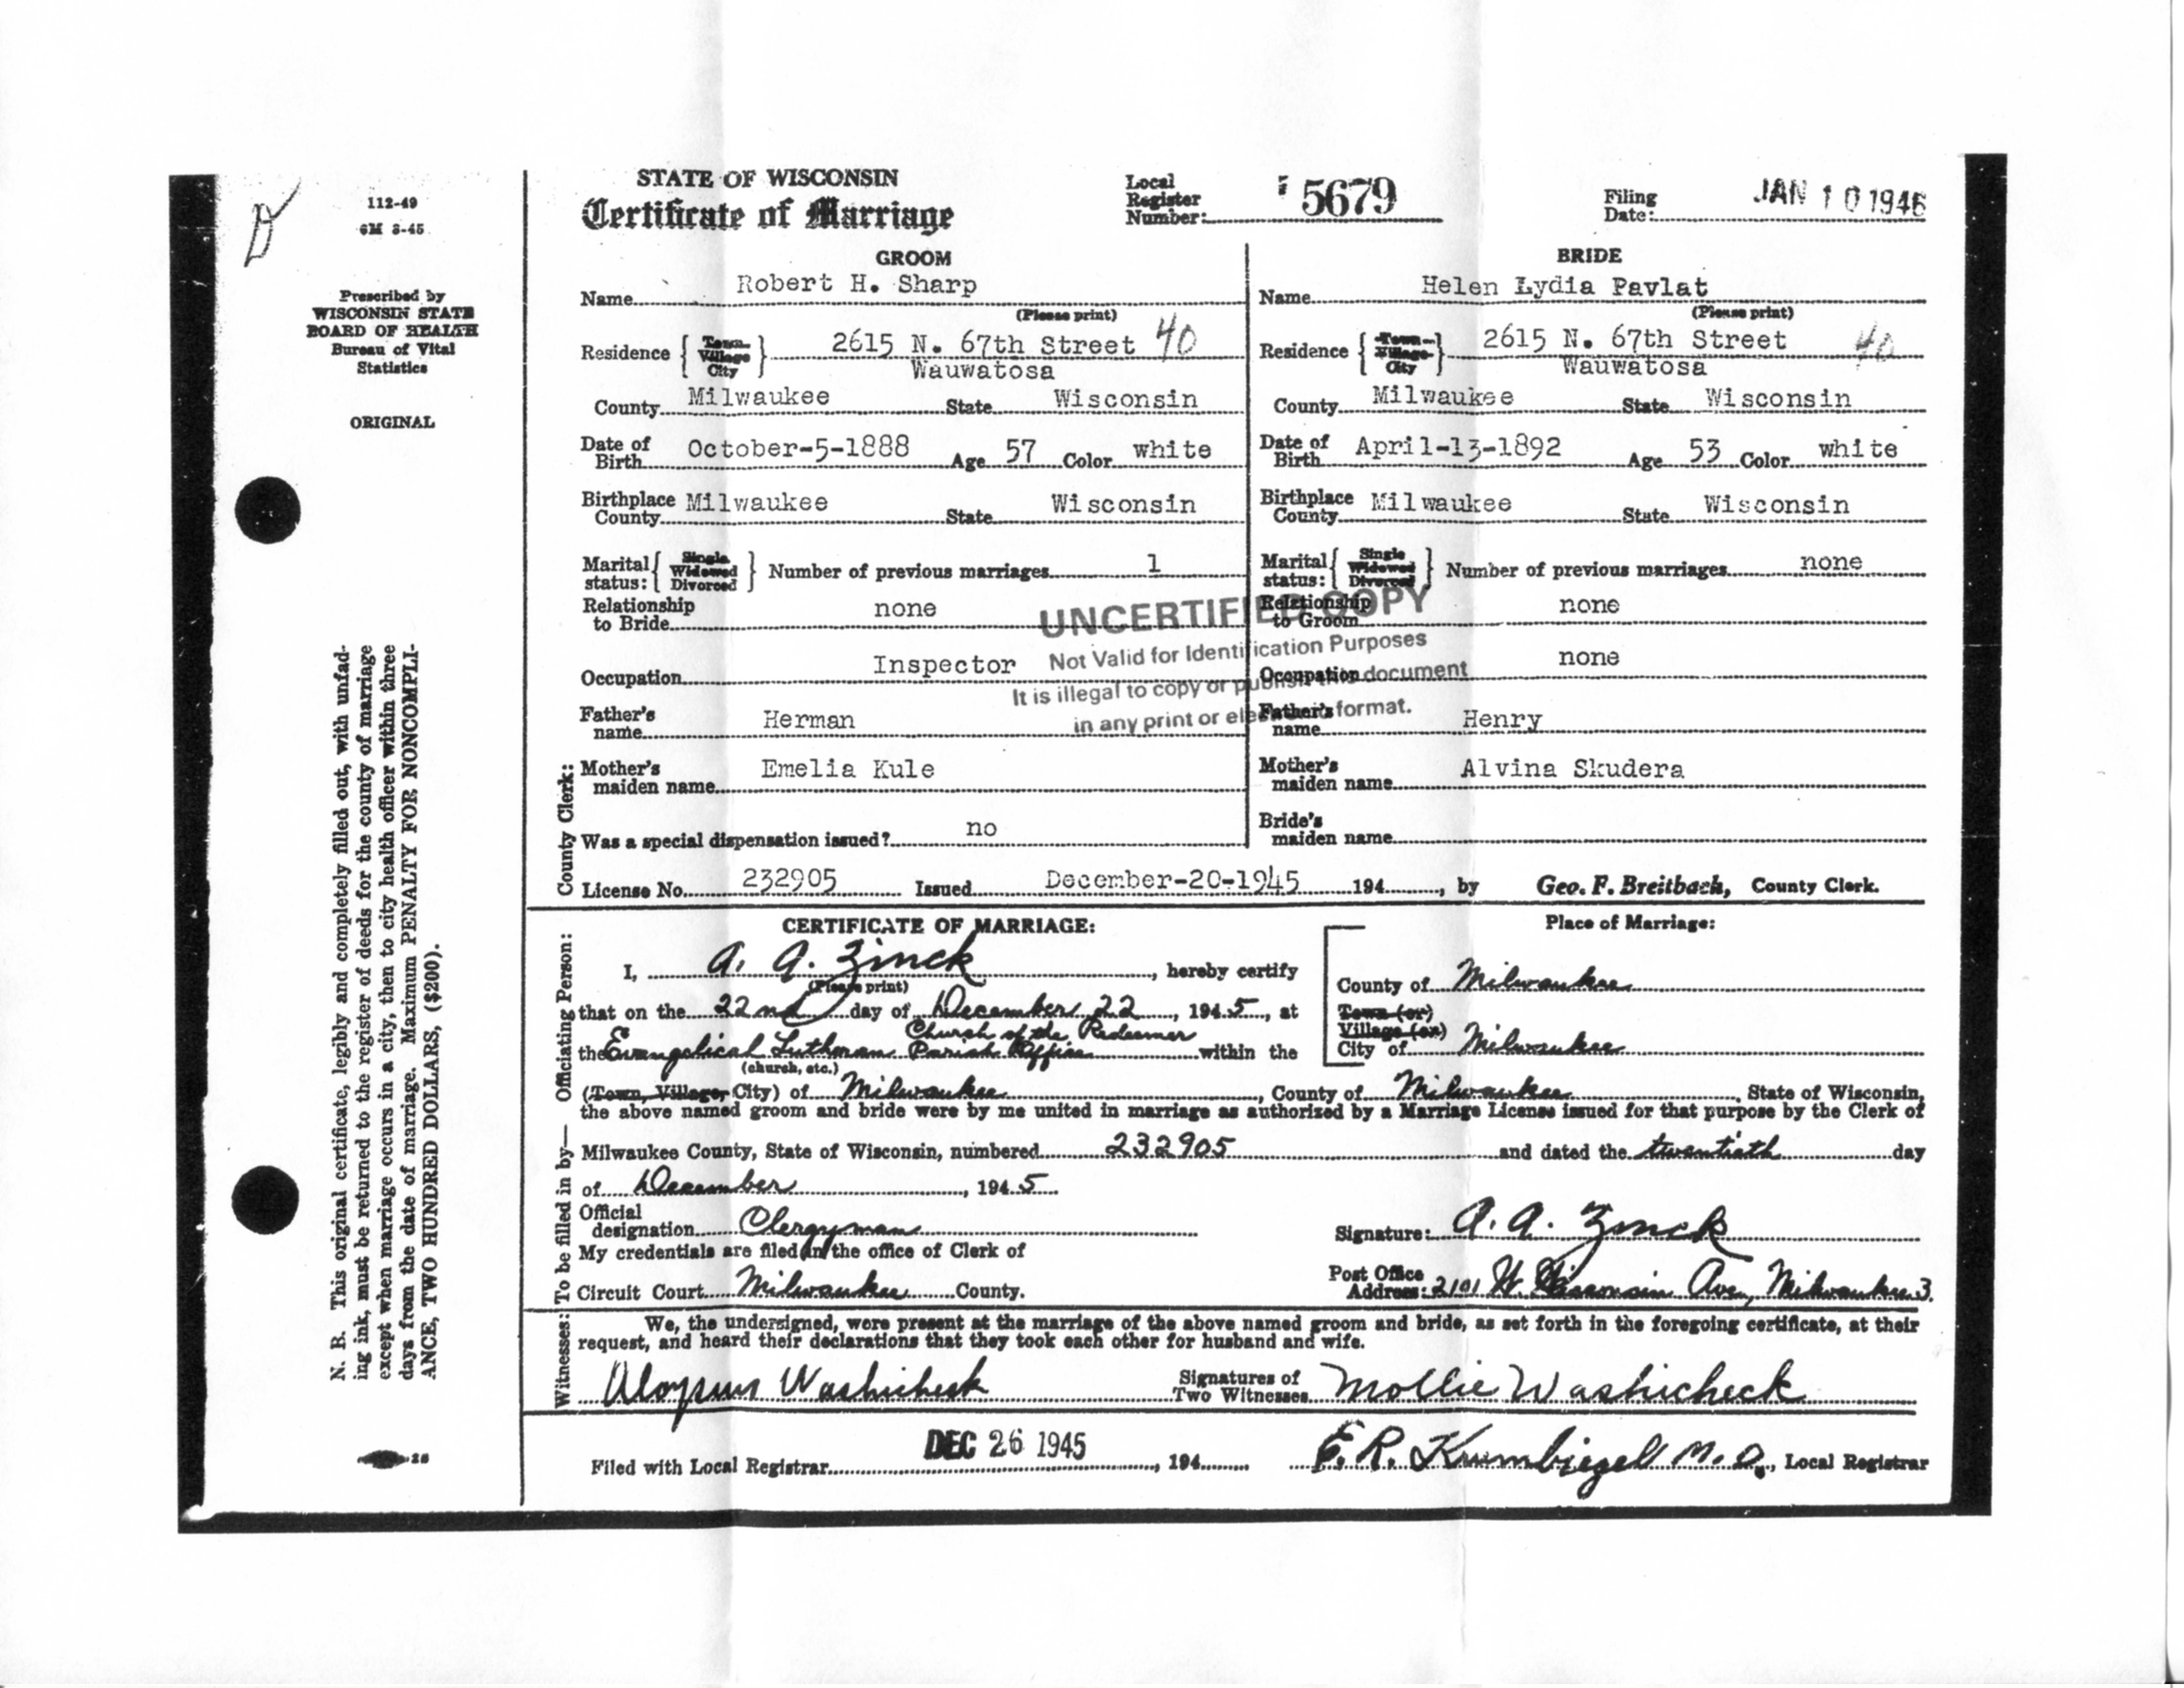 STATE OF WISCONSIN
Certificate of Marriage
Local Register Number: 5679
Filing Date: JAN 10 1946
112-49
6M 3-45
Prescribed by
WISCONSIN STATE
BOARD OF HEALTH
Bureau of Vital
Statistics
ORIGINAL
N. B. This original certificate, legibly and completely filled out, with unfad-
ing ink, must be returned to the register of deeds for the county of marriage
except when marriage occurs in a city, then to city health officer within three
days from the date of marriage. Maximum PENALTY FOR NONCOMPLI-
ANCE, TWO HUNDRED DOLLARS, ($200).
28
County Clerk:
GROOM
Name Robert H. Sharp
(Please print)
Residence { Town Village City } 2615 N. 67th Street 40
Wauwatosa
County Milwaukee State Wisconsin
Date of Birth October-5-1888 Age 57 Color white
Birthplace County Milwaukee State Wisconsin
Marital status: { Single Widowed Divorced } Number of previous marriages 1
Relationship to Bride none
Occupation Inspector
Father's name Herman
Mother's maiden name Emelia Kule
Was a special dispensation issued? no
BRIDE
Name Helen Lydia Pavlat
(Please print)
Residence { Town Village City } 2615 N. 67th Street 40
Wauwatosa
County Milwaukee State Wisconsin
Date of Birth April-13-1892 Age 53 Color white
Birthplace County Milwaukee State Wisconsin
Marital status: { Single Widowed Divorced } Number of previous marriages none
Relationship to Groom none
Occupation none
Father's name Henry
Mother's maiden name Alvina Skudera
Bride's maiden name
UNCERTIFIED COPY
Not Valid for Identification Purposes
It is illegal to copy or publish this document
in any print or electronic format.
License No. 232905 Issued December-20-1945 194 , by Geo. F. Breitbach, County Clerk.
To be filled in by— Officiating Person:
CERTIFICATE OF MARRIAGE:
I, A. A. Zinck, hereby certify
(Please print)
that on the 22nd day of December 22, 1945, at
Church of the Redeemer
the Evangelical Lutheran Parish Office within the
(church, etc.)
Place of Marriage:
County of Milwaukee
Town (or)
Village (or)
City of Milwaukee
(Town, Village, City) of Milwaukee, County of Milwaukee, State of Wisconsin,
the above named groom and bride were by me united in marriage as authorized by a Marriage License issued for that purpose by the Clerk of
Milwaukee County, State of Wisconsin, numbered 232905 and dated the twentieth day
of December, 1945
Official designation Clergyman
Signature: A. A. Zinck
My credentials are filed in the office of Clerk of
Circuit Court Milwaukee County.
Post Office Address: 2101 W. Wisconsin Ave, Milwaukee 3.
Witnesses:
We, the undersigned, were present at the marriage of the above named groom and bride, as set forth in the foregoing certificate, at their
request, and heard their declarations that they took each other for husband and wife.
Aloysius Washicheck Signatures of Two Witnesses Mollie Washicheck
Filed with Local Registrar DEC 26 1945, 194 E. R. Krumbiegel M. D., Local Registrar